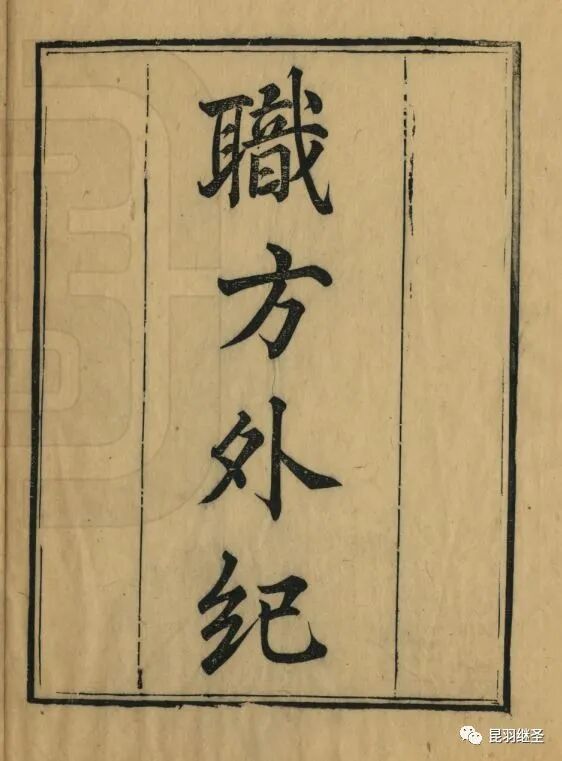 職方外紀
昆羽继圣